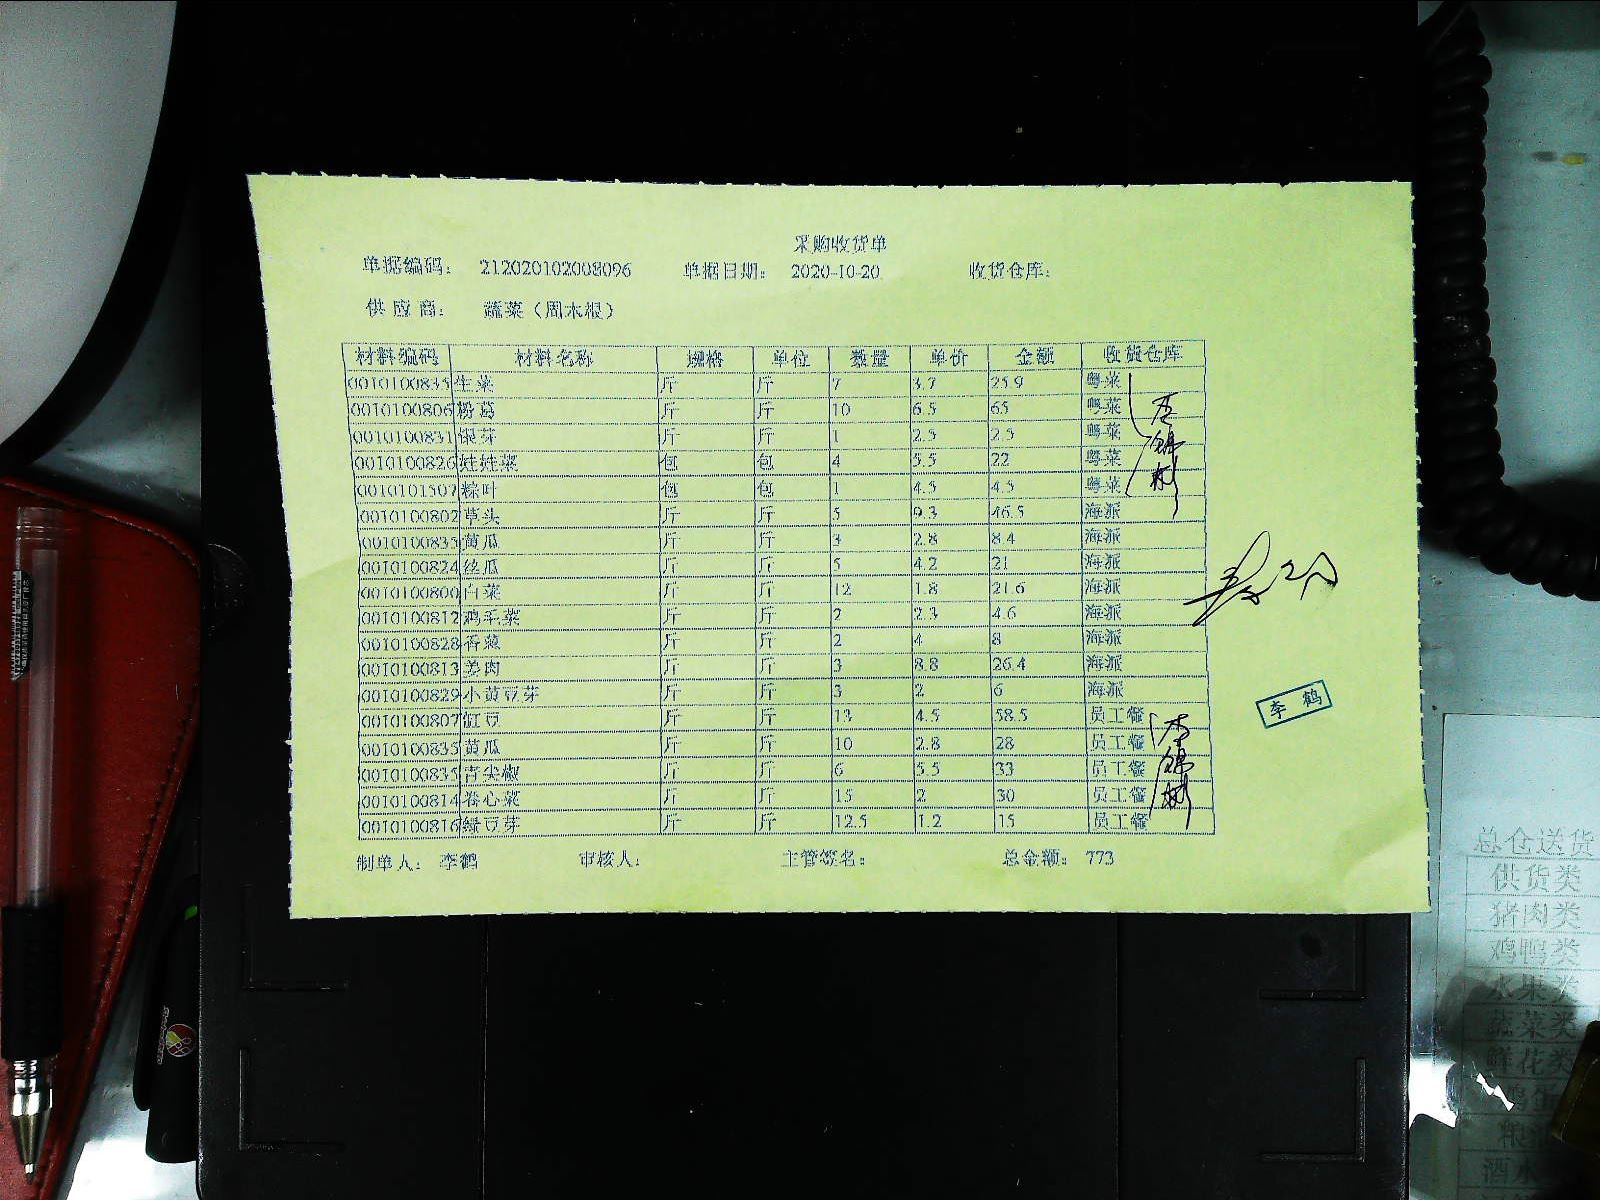 采购收货单
单据编码： 212020102008096 单据日期： 2020-10-20 收货仓库：
供应商： 蔬菜（周木根）
材料编码 材料名称 规格 单位 数量 单价 金额 收货仓库
0010100835 生菜 斤 斤 7 3.7 25.9 粤菜
0010100806 粉葛 斤 斤 10 6.5 65 粤菜
0010100831 银芽 斤 斤 1 2.5 2.5 粤菜
0010100826 娃娃菜 包 包 4 5.5 22 粤菜
0010101507 粽叶 包 包 1 4.5 4.5 粤菜
0010100802 草头 斤 斤 5 9.3 46.5 海派
0010100835 黄瓜 斤 斤 3 2.8 8.4 海派
0010100824 丝瓜 斤 斤 5 4.2 21 海派
0010100800 白菜 斤 斤 12 1.8 21.6 海派
0010100812 鸡毛菜 斤 斤 2 2.3 4.6 海派
0010100828 香葱 斤 斤 2 4 8 海派
0010100813 姜肉 斤 斤 3 8.8 26.4 海派
0010100829 小黄豆芽 斤 斤 3 2 6 海派
0010100807 豇豆 斤 斤 13 4.5 58.5 员工餐
0010100835 黄瓜 斤 斤 10 2.8 28 员工餐
0010100835 青尖椒 斤 斤 6 5.5 33 员工餐
0010100814 卷心菜 斤 斤 15 2 30 员工餐
0010100816 绿豆芽 斤 斤 12.5 1.2 15 员工餐
制单人： 李鹤 审核人： 主管签名： 总金额： 773
李 鹤
总仓送货
供货类
猪肉类
鸡鸭类
水果类
蔬菜类
鲜花类
酒水